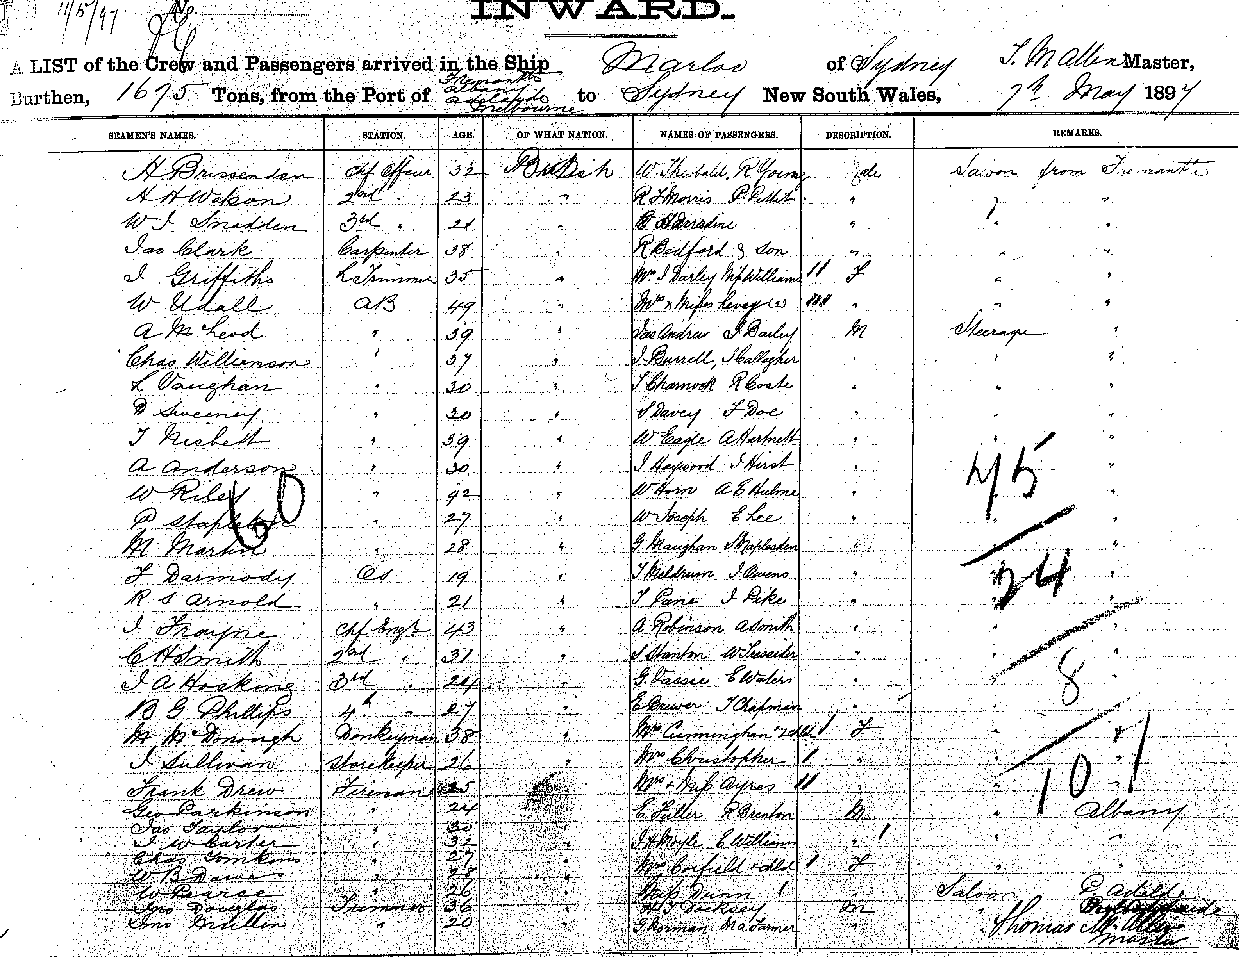 11/5/97
INWARD.
A LIST of the Crew and Passengers arrived in the Ship Marloo of Sydney T. M Allen Master,
Burthen, 1675 Tons, from the Port of Fremantle Albany Adelaide Melbourne to Sydney New South Wales, 7th May 1897
SEAMEN'S NAMES. STATION. AGE. OF WHAT NATION. NAMES OF PASSENGERS. DESCRIPTION. REMARKS.
H Brissenden Chf Officer 32 British W Theobald, R Young Saloon from Fremantle
H H Watson 2nd " 23 " R J Morris P Pettit " " "
W J Snadden 3rd " 21 " " " "
Jas Clark Carpenter 38 " R Bedford & Son " " "
J Griffiths L Trimmer 35 " Mrs J Darley 11 F " "
W Udall AB 49 " Mrs & Misses 1111 " " "
A McLeod " 39 " Jas Andrew J Barley M Steerage "
Chas Williamson " 37 " J Burrell, J Gallagher " " "
L Vaughan " 30 " T Charnock R Coate " " "
D Sweeney " 30 " S Davey F Doe " " "
T Nisbett " 39 " W Eagle A Hartnett " " "
A Anderson " 30 " J Haywood J Hirst " 45 "
W Riley " 42 " W Horn A E Hulme " "
P Stapleton " 27 " W Joseph E Lee " "
60
M Martin " 28 " G Maughan S Maplesden " "
F Darmody OS 19 " T Meldrum J Owens " 24 "
R S Arnold " 21 " T Pane J Pike " " "
J Frayne Chf Engr 43 " A Robinson A Smith " " "
C H Smith 2nd " 31 " S Stanton " " "
J A Hosking 3rd " 24 " G Vassie E Waters " " 8
B G Phillips 4th " 27 " E Brewer T Chapman " "
M McDonough Donkeyman 38 " Mrs Cunningham 1 F " "
J Sullivan Storekeeper 26 " Mrs Christopher 1 " " "
101
Frank Drew Fireman 25 " Mrs & Miss Ayres 11 " "
Geo Parkinson " 24 " E Fuller R Brenton M " Albany
Jas Taylor " 30 "
J W Carter " 32 " J H Moyle E William " " "
Chas Tomkins " 27 "
W B Davis " 28 " Mrs Corfield & child 1 F " "
W Pearce " 26 " Miss Dunn 1 Saloon
Jas Douglas Trimmer 36 " Dicksey M "
Jno Mullen " 20 " Thomas M. Allen
Master